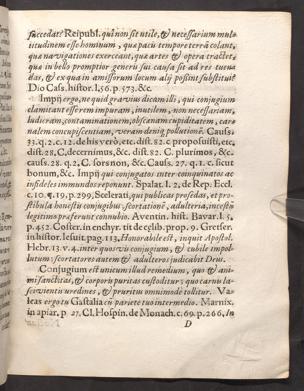 succedat? Reipubl. quî non sit utile, & necessarium mul-
titudinem esse hominum, qua pacis tempore terrâ colant,
qua navigationes exerceant, quæ artes & opera tractet,
qua in bello promptior generi sui causa sit ad res tuendas
dar, & ex qua in amissorum locum alij possint substitui?
Dio Cass. histor. l. 56. p. 573. &c.
Impij ergo, ne quid gravius dicam illi, qui conjugium
clamitant esse rem impuram, inutilem, non necessariam,
ludicram, contaminationem, obscænam cupiditatem, car-
nalem concupiscentiam, veram deniq; pollutionē. Causs.
31. q. 2. c. 12. de his verò, etc. dist. 82. c proposuisti, etc.
dist. 28. C, decernimus, &c. dist. 82. C. plurimos, &c.
causs. 28. q. 2, C. fors non, &c. Causs. 27. q. 1. c. sicut
bonum, &c. Impij qui conjugatos inter coinquinatos ac
infideles immundos reponunt. Spalat. l. 2, de Rep. Eccl.
c. 10. ¶. 19. p. 299, Scelerati, qui publicas prosedas, et pro-
stibula honestis conjugibus, scortationē, adulteria, incestū
legitimo præferunt connubio. Aventin. hist. Bavar. l. 5,
p. 452. Coster. in enchyr. tit de cęlib. prop. 9. Gretser.
in histor. Iesuit. pag. 113, Honorabile est, inquit Apostol.
Hebr. 13. v. 4. inter quosvis conjugium, & cubile impol-
lutum: scortatores autem & adulteros judicabit Deus.
Conjugium est unicum illud remedium, quo & ani-
mi sanctitas, & corporis puritas custoditur: quo carnis la-
scivientis uredines, & pruritus omnimodè tollitur. Va-
leas ergo tu Gastalia cū pariete tuo intermedio. Marnix.
in apiar. p. 27. Cl. Hospin. de Monach. c. 69. p. 266, In
D